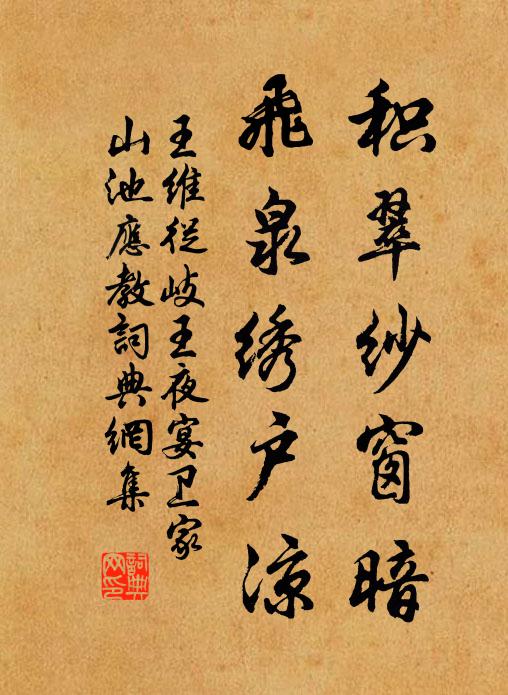 积翠纱窗暗
飞泉绣户凉
王维從岐王夜宴卫家
山池應教詞典網集
詞典
网印